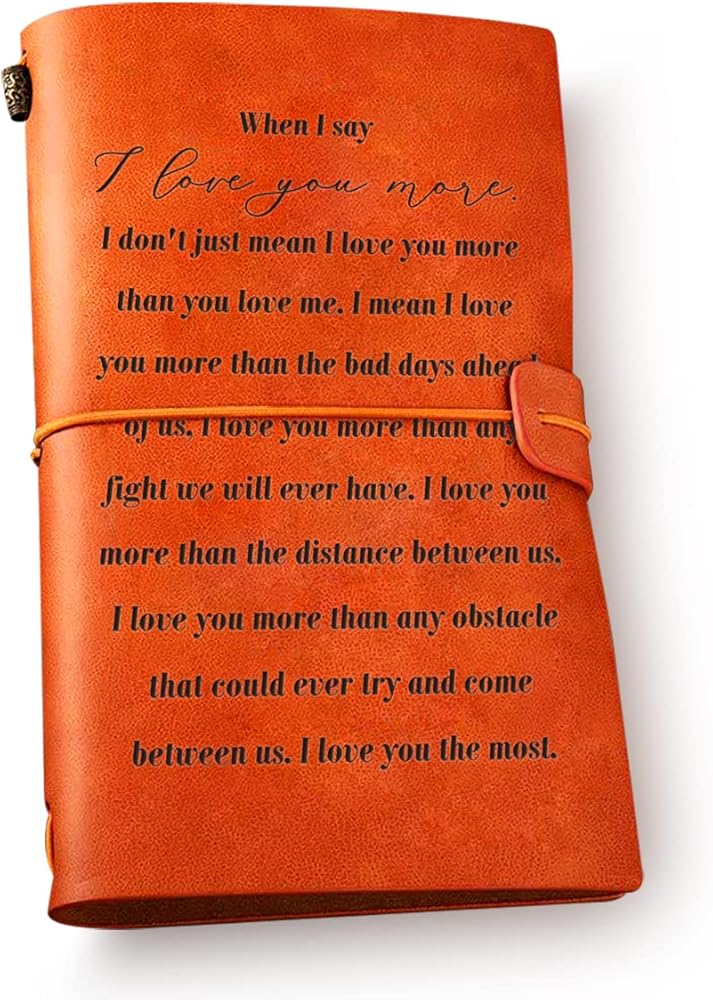 When I say
I love you more.
I don't just mean I love you more
than you love me. I mean I love
you more than the bad days ahead
of us, I love you more than any
fight we will ever have. I love you
more than the distance between us,
I love you more than any obstacle
that could ever try and come
between us. I love you the most.